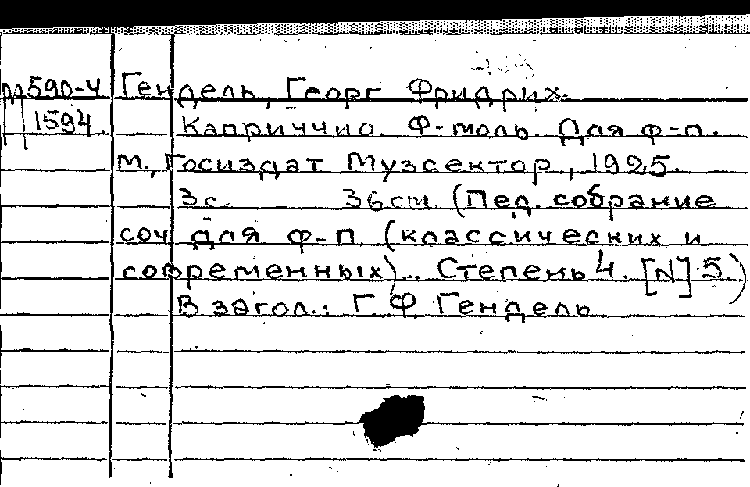 м590-4 Гендель, Георг Фридрих.
1594. Каприччио. Ф-моль. Для ф-п.
М., Госиздат Музсектор, 1925.
3с. 36 см. (Пед. собрание
соч. для ф-п. (классических и
современных). Степень 4. [N] 5.)
В загол.: Г. Ф. Гендель